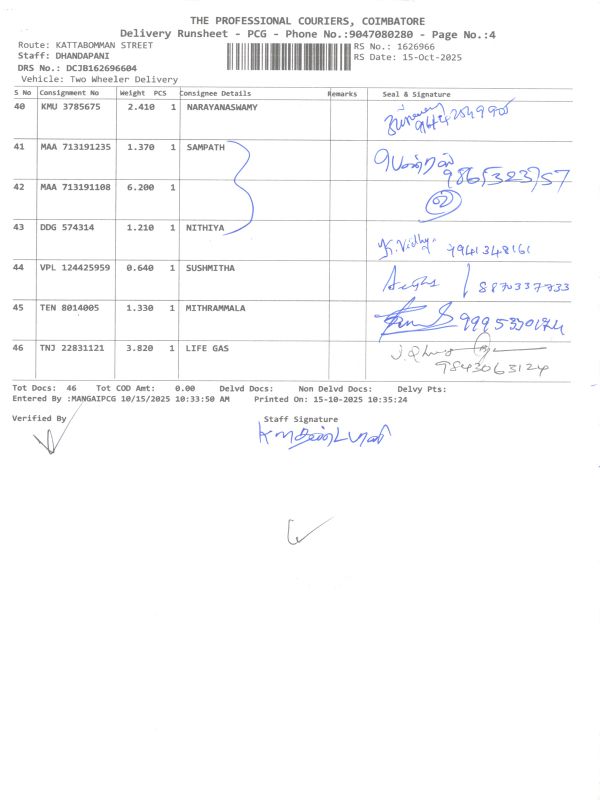 THE PROFESSIONAL COURIERS, COIMBATORE
Delivery Runsheet - PCG - Phone No.:9047080280 - Page No.:4
Route: KATTABOMMAN STREET RS No.: 1626966
Staff: DHANDAPANI RS Date: 15-Oct-2025
DRS No.: DCJB162696604
Vehicle: Two Wheeler Delivery
S No Consignment No Weight PCS Consignee Details Remarks Seal & Signature
40 KMU 3785675 2.410 1 NARAYANASWAMY
41 MAA 713191235 1.370 1 SAMPATH
42 MAA 713191108 6.200 1
02
43 DDG 574314 1.210 1 NITHIYA K. Vidhya 7941348161
44 VPL 124425959 0.640 1 SUSHMITHA 8870337733
45 TEN 8014005 1.330 1 MITHRAMMALA
46 TNJ 22831121 3.820 1 LIFE GAS 9843063124
Tot Docs: 46 Tot COD Amt: 0.00 Delvd Docs: Non Delvd Docs: Delvy Pts:
Entered By :MANGAIPCG 10/15/2025 10:33:50 AM Printed On: 15-10-2025 10:35:24
Verified By Staff Signature